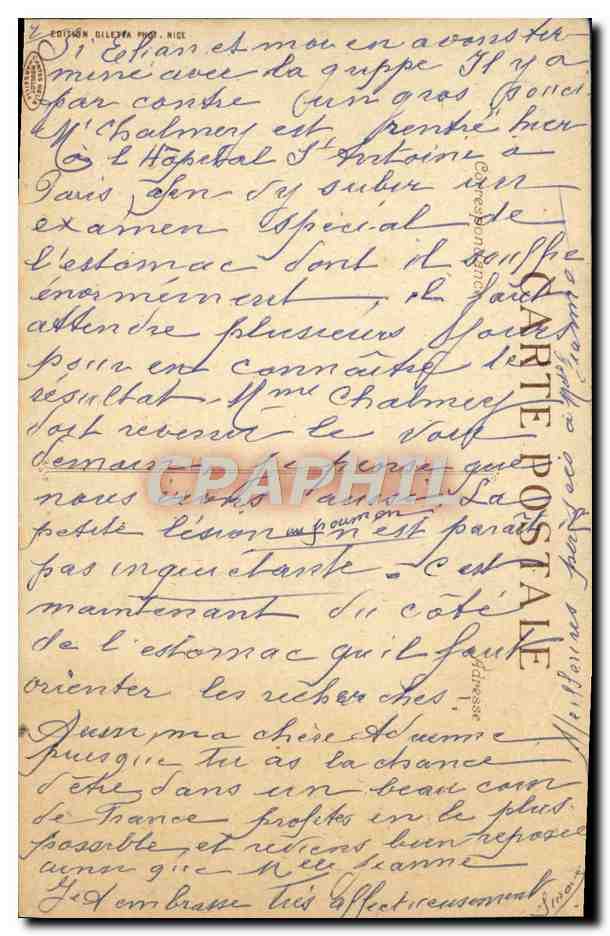 EDITION GILETTA PHOT. NICE
et moi en avons ter-
miné avec la grippe Il y a
par contre un gros souci
Mr Chalmey est rentré hier
à l'Hôpital St Antoine à
Paris afin d'y subir un
examen spécial de
l'estomac dont il souffre
énormément, il faut
attendre plusieurs jours
pour en connaître le
résultat. Mme Chalmey
doit revenir le voir
demain - Je pense que
nous irons aussi. La
petite lésion au poumon n'est paraît
pas inquiétante - c'est
maintenant du côté
de l'estomac qu'il faut
orienter les recherches -
ma chère Adrienne
puisque tu as la chance
d'être dans un beau coin
de France profites en le plus
possible et reviens bien reposée
ainsi que Melle Jeanne
Je t'embrasse très affectueusement
Meilleures pensées à Melle Jeanne
Correspondance
CARTE POSTALE
Adresse
CPAPHIL